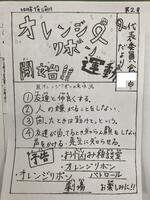 第2号
代表委員会だより
オレンジリボン運動
開始!!
オレンジリボンの決まり
①友達と仲良くする。
②人の嫌がることをしない。
③困ったときは助けて、という。
④友達が困ってるとき知らん顔をしない。
声をかける・先生に知らせる。
予告
・お悩み相談室
・オレンジリボン
・オレンジリボン パトロール
劇場
お楽しみに!!